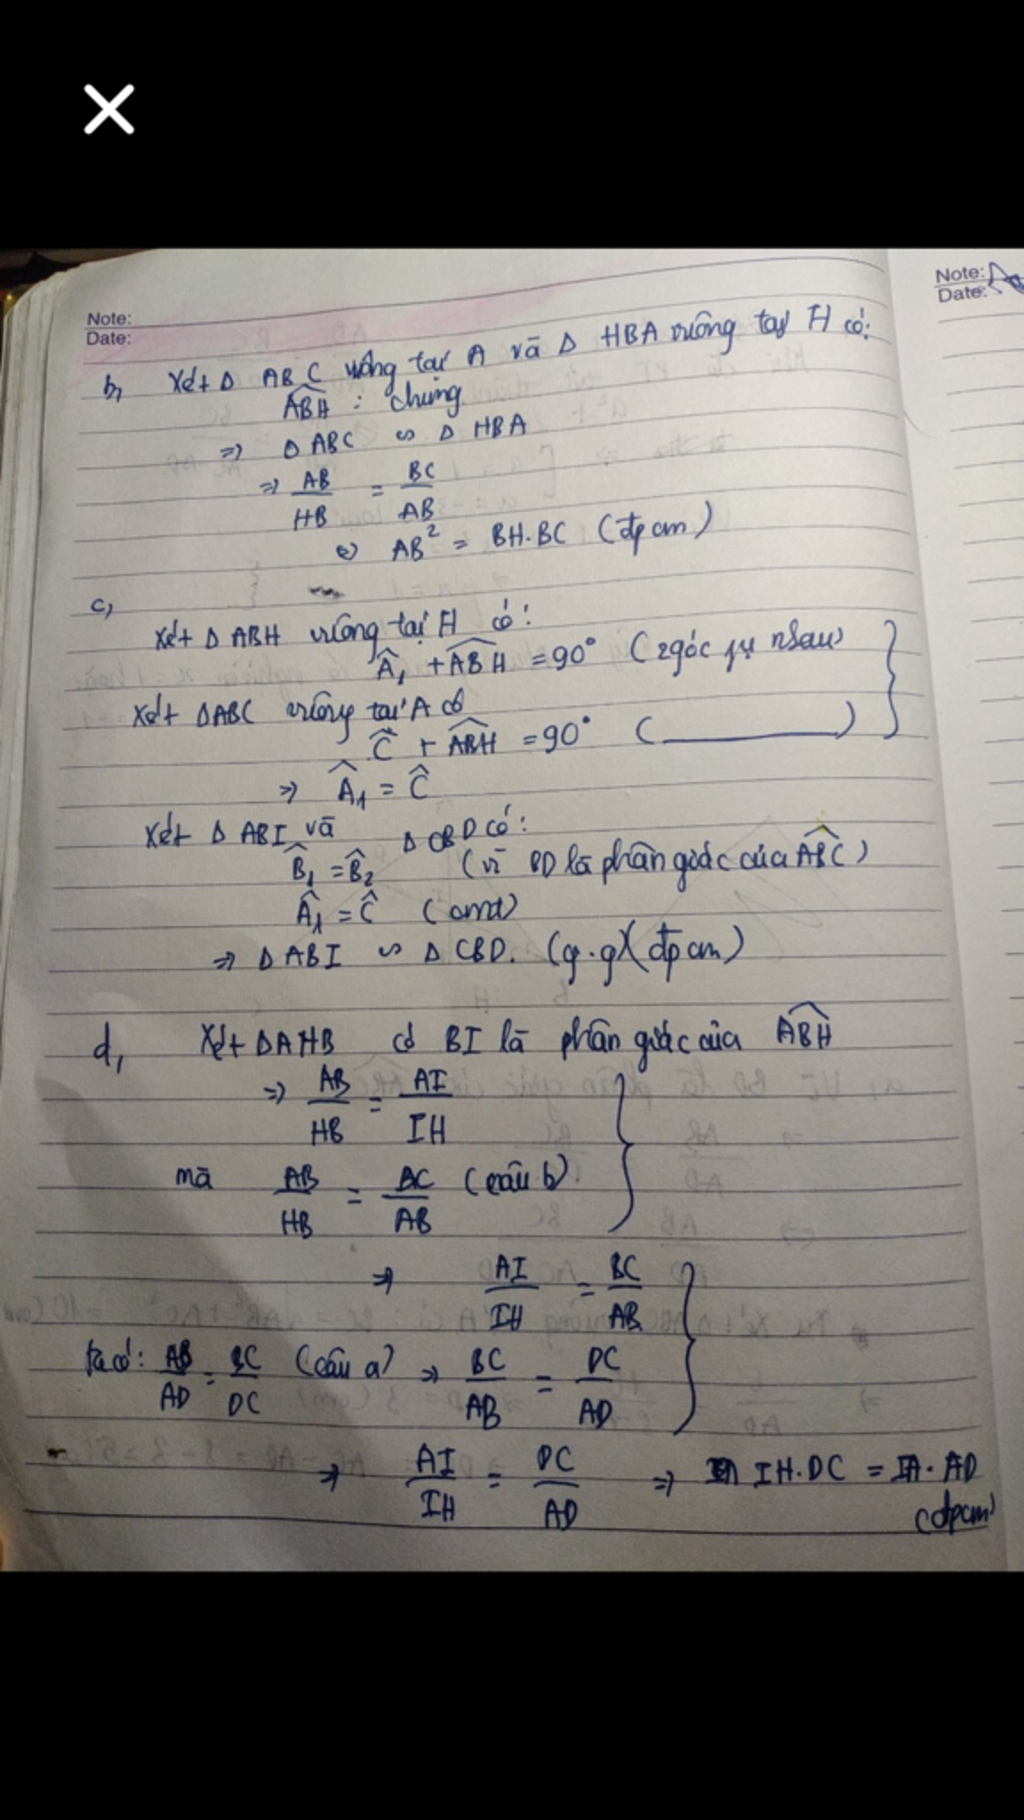 Note:
Date:
Note:
Date:
b, Xét Δ ABC vuông tại A và Δ HBA vuông tại H có:
ABH : chung
=> Δ ABC ∽ Δ HBA
=> AB/HB = BC/AB
<=> AB² = BH.BC (đpcm)
c,
Xét Δ ABH vuông tại H có:
Â₁ + ABH = 90° (2góc phụ nhau)
Xét ΔABC vuông tại A có
Ĉ + ABH = 90° ( ______ )
=> Â₁ = Ĉ
Xét Δ ABI và Δ CBD có:
B̂₁ = B̂₂ (vì BD là phân giác của ABC)
Â₁ = Ĉ (cmt)
=> Δ ABI ∽ Δ CBD. (g.g)(đpcm)
d, Xét ΔAHB có BI là phân giác của ABH
=> AB/HB = AI/IH
mà AB/HB = BC/AB (câu b)
=> AI/IH = BC/AB
ta có: AB/AD = BC/DC (câu a) => BC/AB = DC/AD
=> AI/IH = DC/AD => IH.DC = IA.AD
(đpcm)